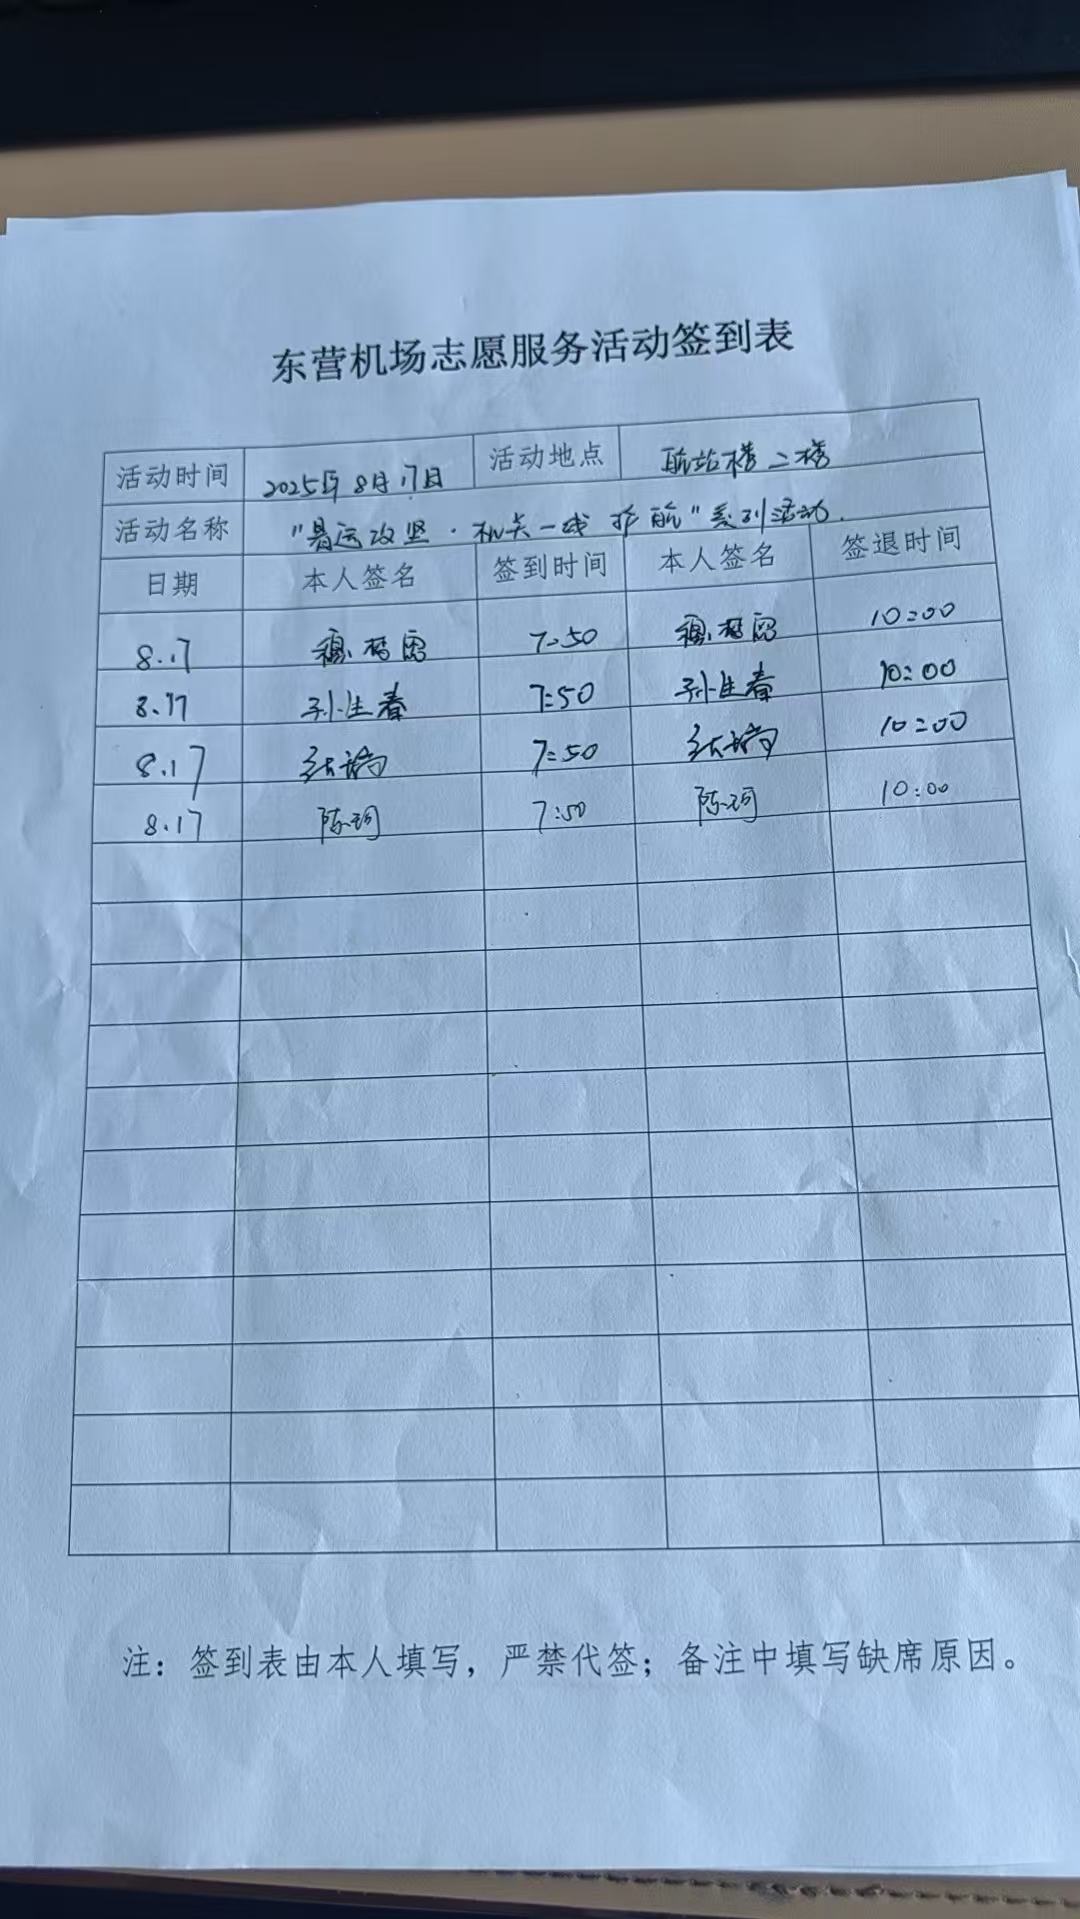 东营机场志愿服务活动签到表
活动时间 2025年8月17日 活动地点 航站楼二楼
活动名称 "暑运攻坚·机关一线护航"系列活动.
日期 本人签名 签到时间 本人签名 签退时间
8.17 7:50 10:00
8.17 孙生春 7:50 孙生春 10:00
8.17 7:50 10:00
8.17 陈珂 7:50 陈珂 10:00
注：签到表由本人填写，严禁代签；备注中填写缺席原因。